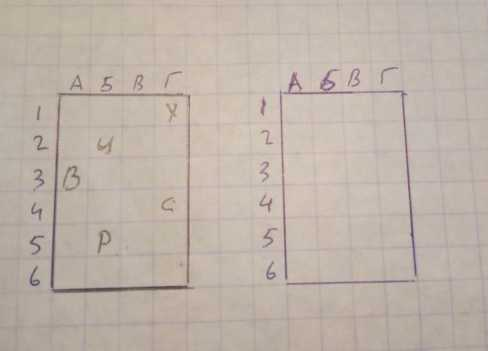 А Б В Г
1 У
2 Ч
3 В
4 С
5 Р
6
А Б В Г
1
2
3
4
5
6